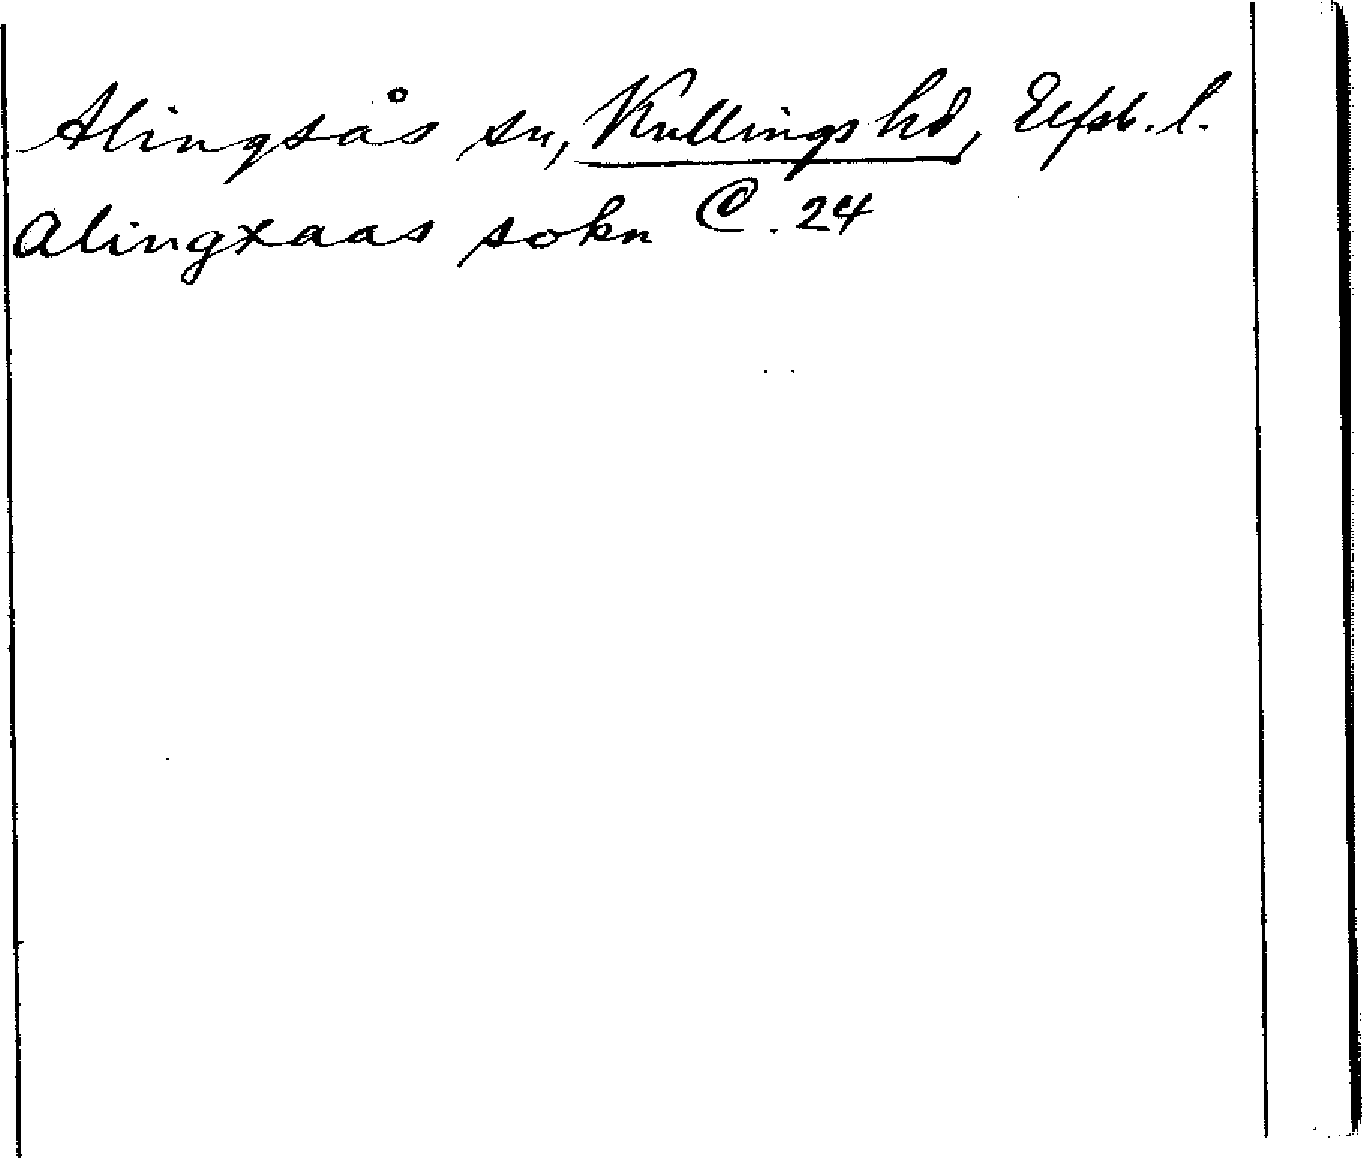 Alingsås sn, Kullings hd, Elfsb. l.
Alingxaas sokn C. 24